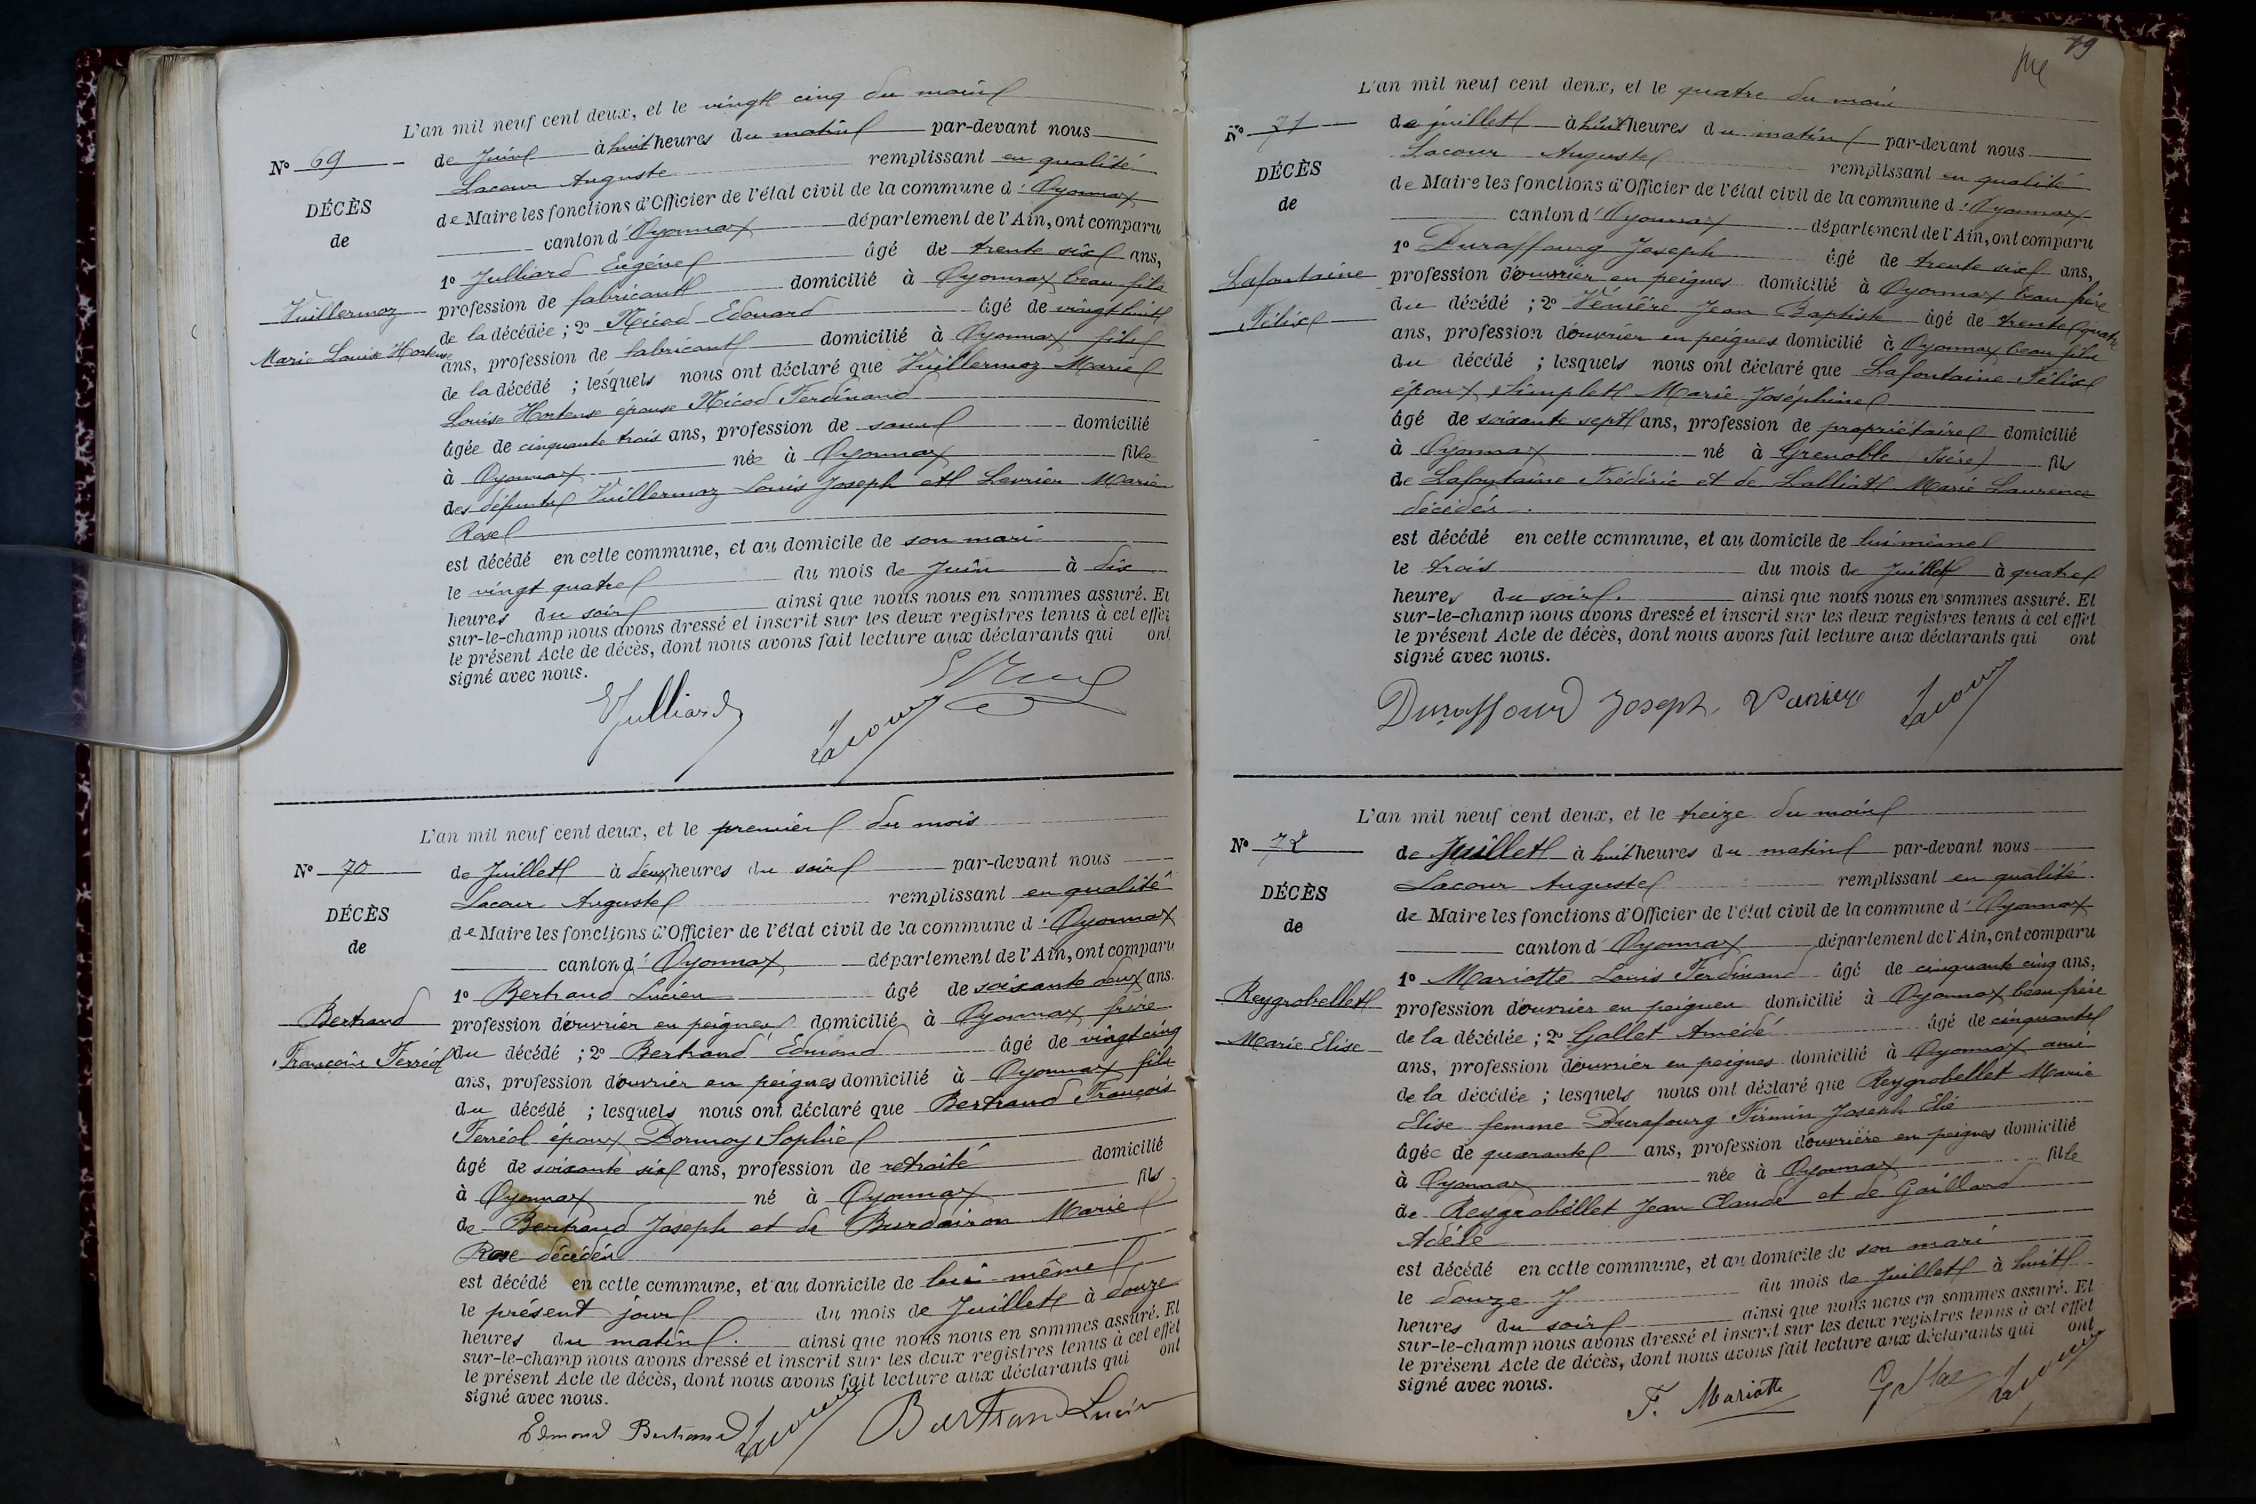 L'an mil neuf cent deux, et le vingt cinq du mois
N° 69
de Juin à huit heures du matin par-devant nous
Lacour Auguste remplissant en qualité
DÉCÈS
de Maire les fonctions d'Officier de l'état civil de la commune d'Oyonnax
de
canton d'Oyonnax département de l'Ain, ont comparu
1° Julliard Eugène âgé de trente six ans,
Vuillermoz
Marie Louise Hortense
profession de fabricant domicilié à Oyonnax beau fils
de la décédée ; 2° Nicod Edouard âgé de vingt huit
ans, profession de fabricant domicilié à Oyonnax fils
de la décédé ; lesquels nous ont déclaré que Vuillermoz Marie
Louise Hortense épouse Nicod Ferdinand
âgée de cinquante trois ans, profession de sans domicilié
à Oyonnax née à Oyonnax fille
des défunts Vuillermoz Louis Joseph et Levrier Marie
Rose
est décédé en cette commune, et au domicile de son mari
le vingt quatre du mois de Juin à dix
heures du soir ainsi que nous nous en sommes assuré. Et
sur-le-champ nous avons dressé et inscrit sur les deux registres tenus à cet effet
le présent Acte de décès, dont nous avons fait lecture aux déclarants qui ont
signé avec nous.
EJulliard Lacour
L'an mil neuf cent deux, et le premier du mois
N° 70
de Juillet à deux heures du soir par-devant nous
Lacour Auguste remplissant en qualité
DÉCÈS
de Maire les fonctions d'Officier de l'état civil de la commune d'Oyonnax
de
canton d'Oyonnax département de l'Ain, ont comparu
1° Bertrand Lucien âgé de soixante deux ans.
Bertrand
François Ferréol
profession d'ouvrier en peignes domicilié à Oyonnax frère
du décédé ; 2° Bertrand Edmond âgé de vingt cinq
ans, profession d'ouvrier en peignes domicilié à Oyonnax fils
du décédé ; lesquels nous ont déclaré que Bertrand François
Ferréol époux Dormoy Sophie
âgé de soixante six ans, profession de retraité domicilié
à Oyonnax né à Oyonnax fils
de Bertrand Joseph et de Burdairon Marie
Rose décédés
est décédé en cette commune, et au domicile de lui-même
le présent jour du mois de Juillet à douze
heures du matin. ainsi que nous nous en sommes assuré. Et
sur-le-champ nous avons dressé et inscrit sur les deux registres tenus à cet effet
le présent Acte de décès, dont nous avons fait lecture aux déclarants qui ont
signé avec nous.
Edmond Bertrand Lacour Bertrand Lucien
79
L'an mil neuf cent deux, et le quatre du mois
N° 71
de juillet à huit heures du matin par-devant nous
Lacour Auguste remplissant en qualité
DÉCÈS
de Maire les fonctions d'Officier de l'état civil de la commune d'Oyonnax
de
canton d'Oyonnax département de l'Ain, ont comparu
1° Duraffourg Joseph âgé de trente six ans,
Lafontaine
Félix
profession d'ouvrier en peignes domicilié à Oyonnax beau frère
du décédé ; 2° Vénière Jean Baptiste âgé de trente quatre
ans, profession d'ouvrier en peignes domicilié à Oyonnax beau fils
du décédé ; lesquels nous ont déclaré que Lafontaine Félix
époux Simplet Marie Joséphine
âgé de soixante sept ans, profession de propriétaire domicilié
à Oyonnax né à Grenoble (Isère) fils
de Lafontaine Frédéric et de Lalliat Marie Laurence
décédés.
est décédé en cette commune, et au domicile de lui même
le trois du mois de Juillet à quatre
heures du soir. ainsi que nous nous en sommes assuré. Et
sur-le-champ nous avons dressé et inscrit sur les deux registres tenus à cet effet
le présent Acte de décès, dont nous avons fait lecture aux déclarants qui ont
signé avec nous.
Duraffourd Joseph Lacour
L'an mil neuf cent deux, et le treize du mois
N° 72
de Juillet à huit heures du matin par-devant nous
Lacour Auguste remplissant en qualité
DÉCÈS
de Maire les fonctions d'Officier de l'état civil de la commune d'Oyonnax
de
canton d'Oyonnax département de l'Ain, ont comparu
1° Mariotte Louis Ferdinand âgé de cinquante cinq ans,
Reygrobellet
Marie Elise
profession d'ouvrier en peignes domicilié à Oyonnax beau frère
de la décédée ; 2° Gollet Amédé âgé de cinquante
ans, profession d'ouvrier en peignes domicilié à Oyonnax ami
de la décédée ; lesquels nous ont déclaré que Reygrobellet Marie
Elise femme Durafourg Firmin Joseph Elie
âgée de quarante ans, profession d'ouvrière en peignes domicilié
à Oyonnax née à Oyonnax fille
de Reygrobellet Jean Claude et de Gaillard
Adèle
est décédé en cette commune, et au domicile de son mari
le douze du mois de Juillet à huit
heures du soir ainsi que nous nous en sommes assuré. Et
sur-le-champ nous avons dressé et inscrit sur les deux registres tenus à cet effet
le présent Acte de décès, dont nous avons fait lecture aux déclarants qui ont
signé avec nous.
F. Mariotte Lacour